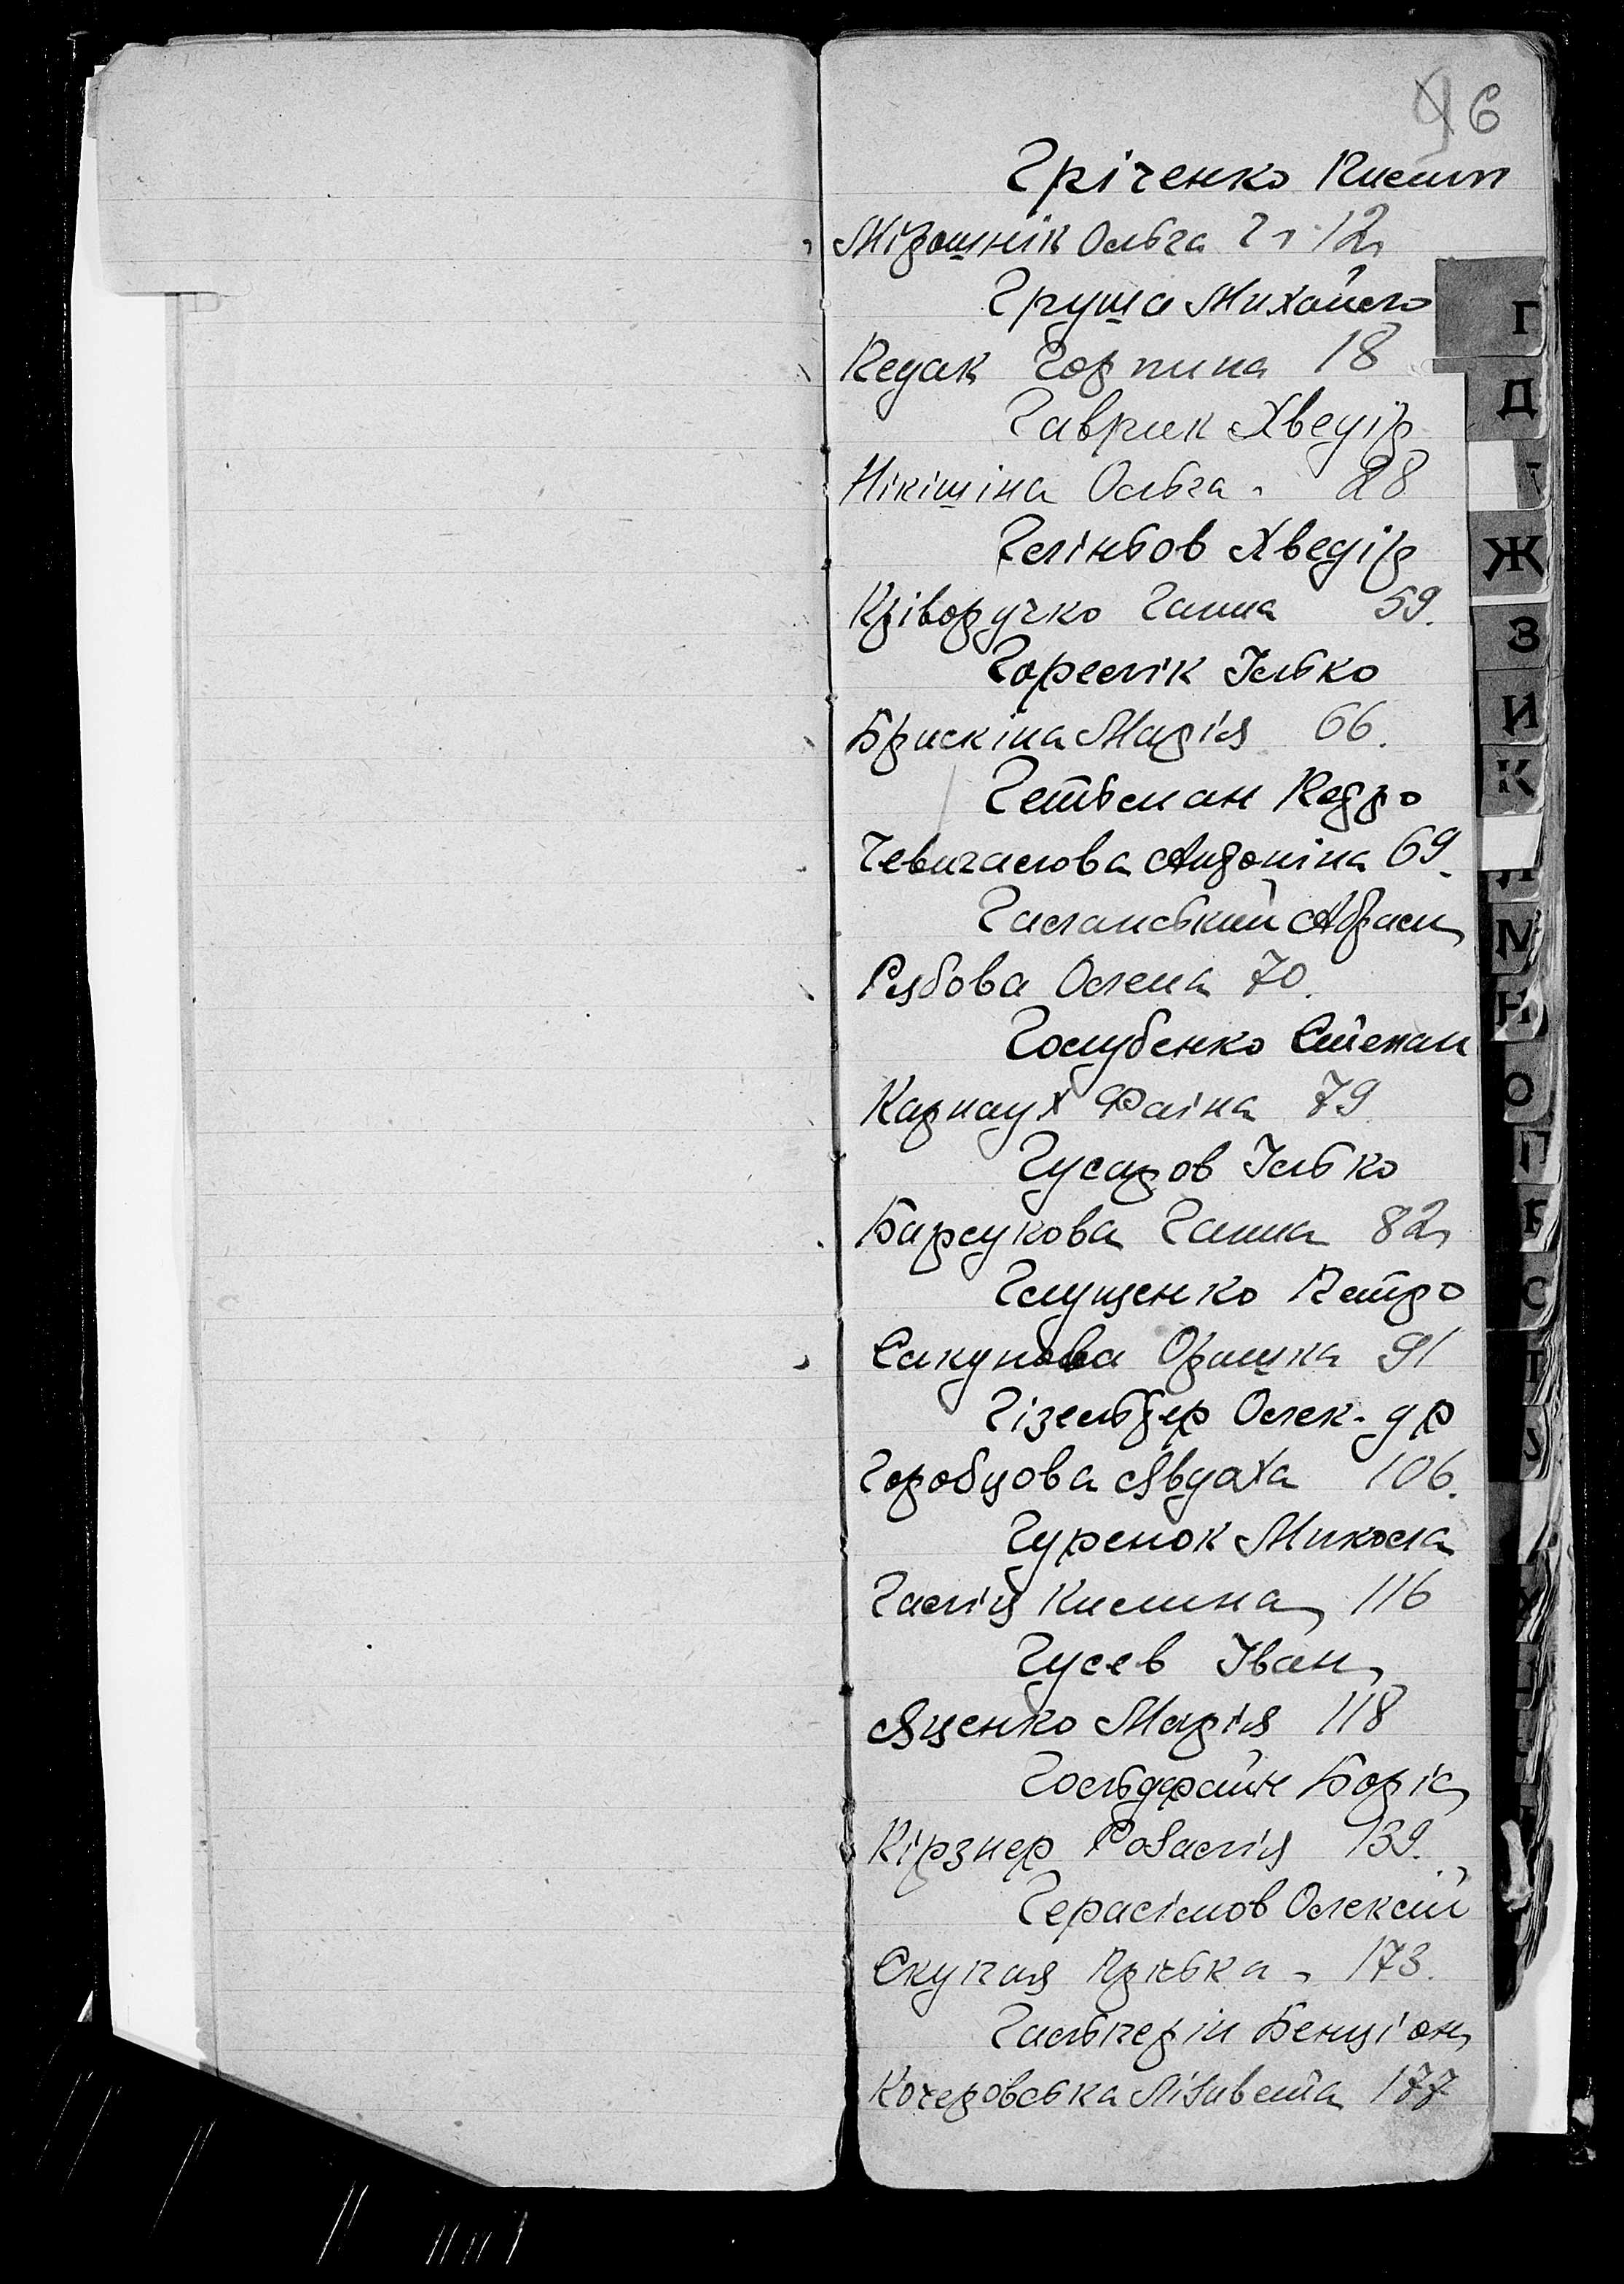 6
Гріченко Пилип
Мірошнік Ольга Гл 12
Груша Михайло
Педак Горпина 18
Гаврик Хведір
Нікішіна Ольга 28
Гліньов Хведір
Кріворучко Ганна 59.
Горелік Ілько
Брискіна Марія 66.
Гетьман Педро
Чевичалова Андоніна 69.
Галанський Абрам
Рябова Олена 70.
Голубенко Степан
Карнаух Фаіна 79
Гусаров Ілько
Барсукова Ганна 82
Глущенко Петро
Сакунова Оришка 91
Гізельтер Олек-др
Горобцова Явдаха 106.
Гуренок Микола
Галіц Килина 116
Гусев Іван
Яценко Марія 118
Гольдфайн Боріс
Кірзнер Розалія 139.
Герасімов Олексій
Скупая Прінька 173.
Гальперін Бенціон
Кочеровська Лізавета 177
Г
Д
Ж
З
И
К
М
Н
О
П
С
Т